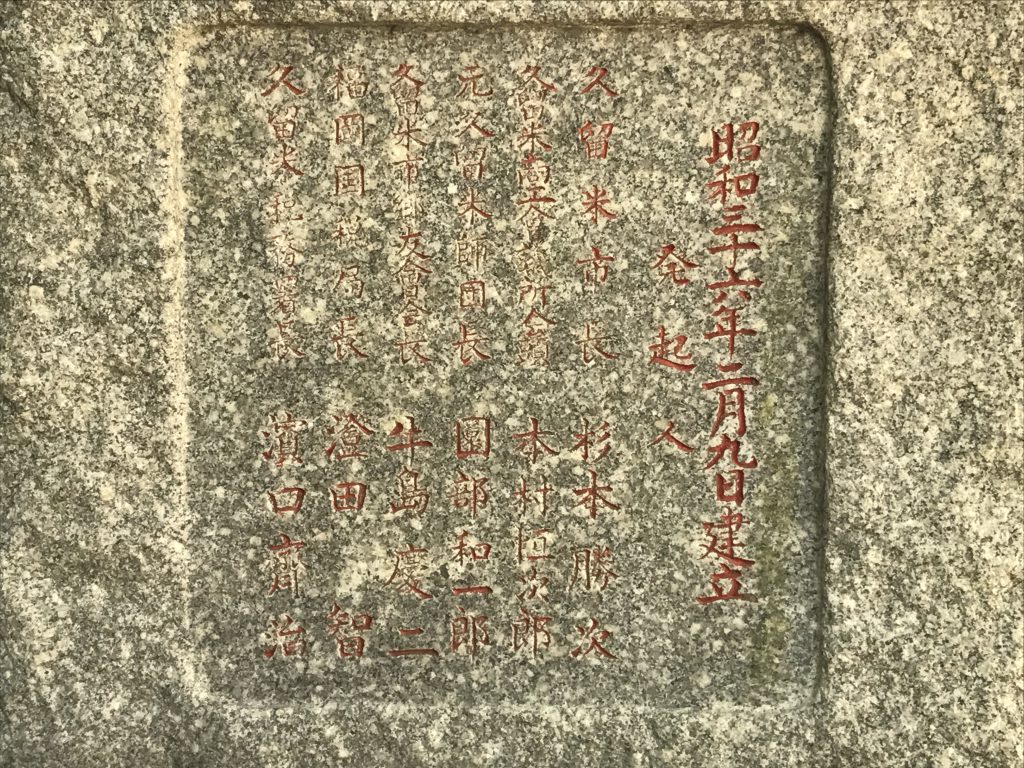 昭和三十六年二月九日建立
発起人
久留米市長 杉本勝次
久留米商工会議所会頭 本村恒次郎
元久留米師団長 園部和一郎
久留米市郷友会会長 牛島慶二
福岡国税局長 澄田智
久留米税務署長 濱口齊治